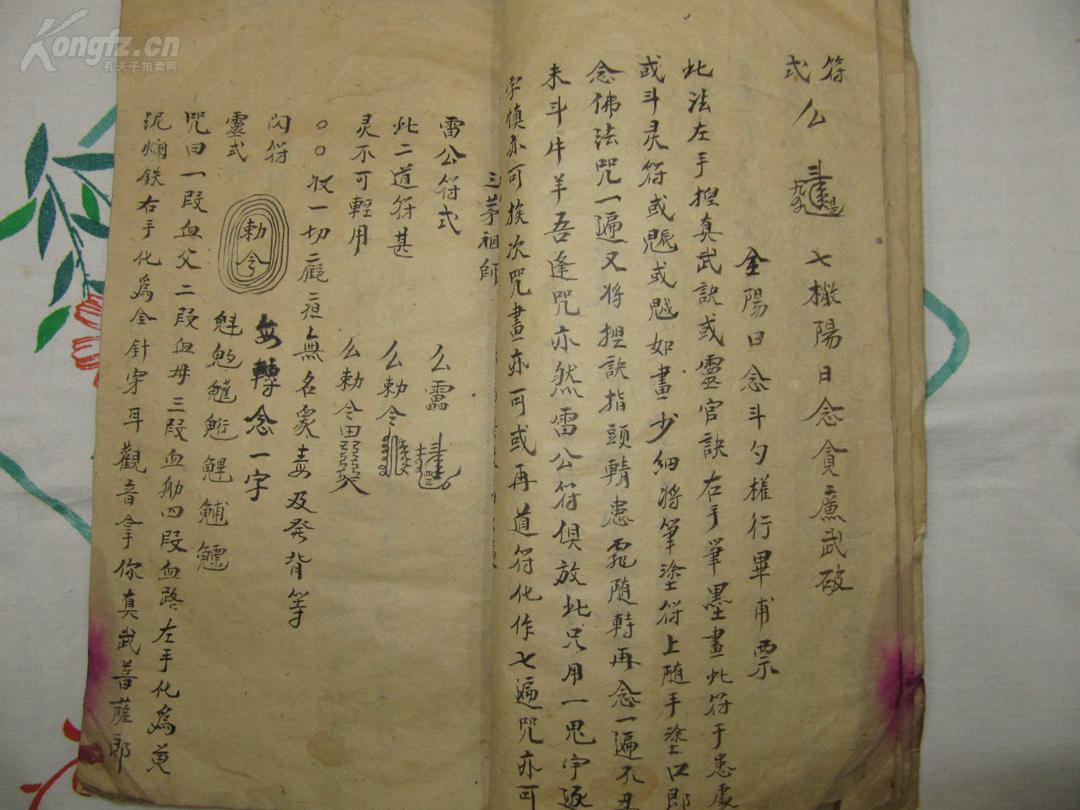 Kongfz.cn
孔夫子拍卖网
符式 么 七櫢陽日念貪廉武破
全陽日念斗勺權行畢甫票
此法左手担真武訣或靈官訣右手筆墨畫此符于患處
或斗灵符或魇或魃如畫少细將筆塗符上随手塗口即
念佛法咒一遍又将担訣指頭轉患 随轉再念一遍不
未斗牛羊吾逢咒亦然雷公符俱放此只用一鬼字逐
字慎亦可挨次咒畫亦可或再道符化作七遍咒亦可
三茅祖師
雷公符式 么
此二道符甚 么勅令
灵不可輕用 么勅令
〇〇 收一切 無名 毒及發背等
閃符 安轉念一字
靈式 勅令
咒曰一段血父二段血母三段血 四段血路左手化為
泥爛鉄右手化為金針穿耳觀音拿你真武菩薩郎